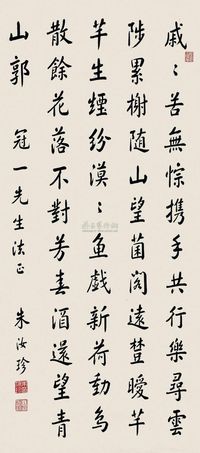 戚〻苦無悰携手共行樂尋雲
陟累榭隨山望菌閣遠曖芊
芊生煙紛漠〻魚戲新荷動鳥
散餘花落不對芳春酒還望青
山郭 冠一先生法正
朱汝珍